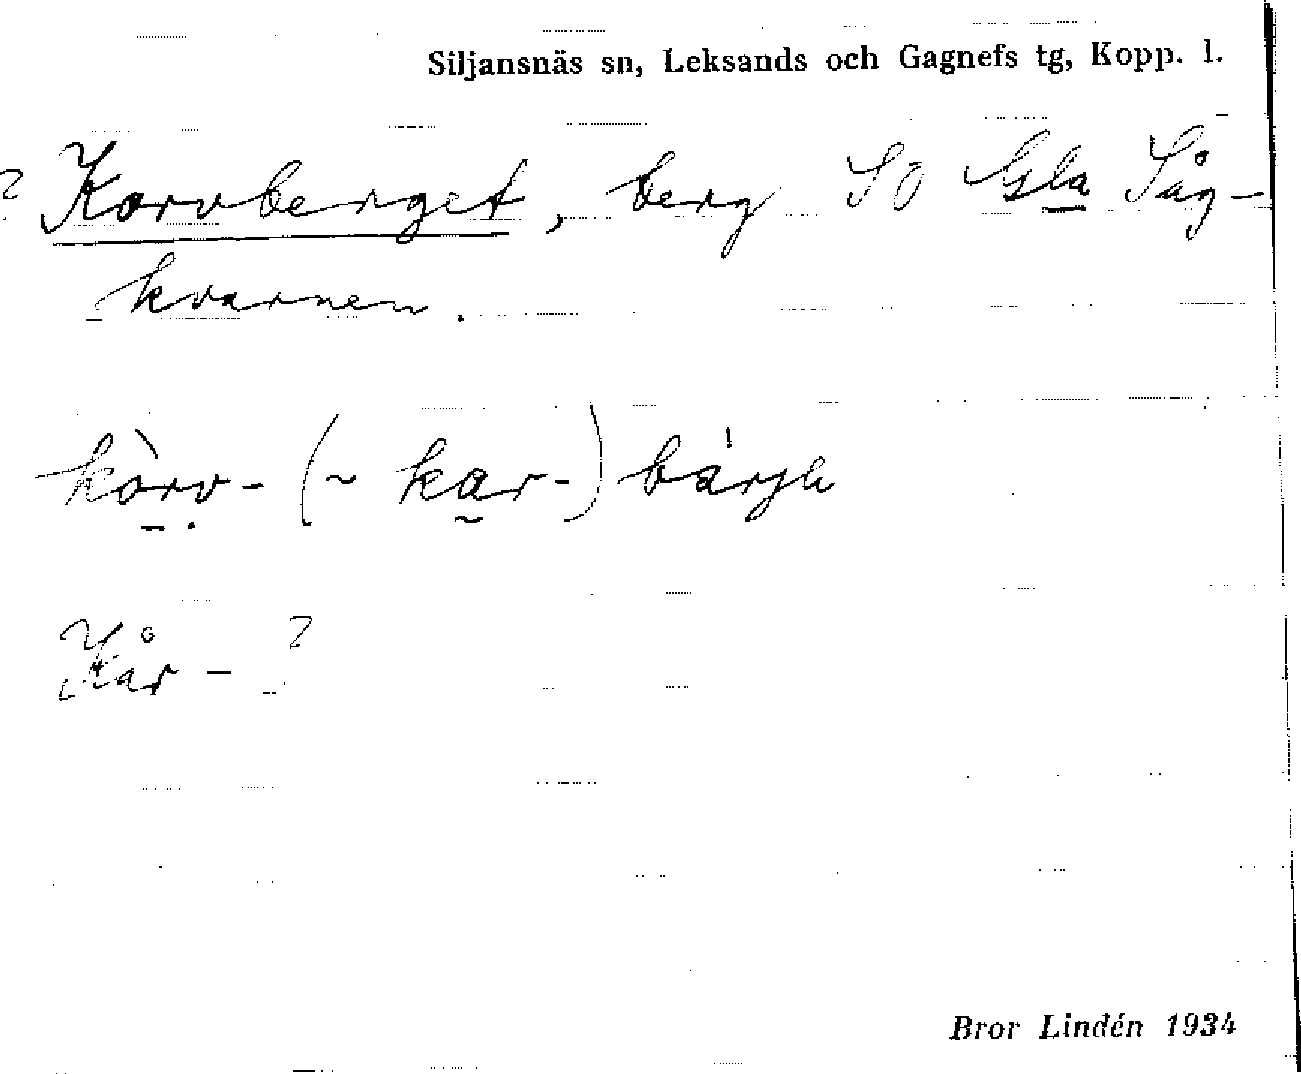 Siljansnäs sn, Leksands och Gagnefs tg, Kopp. l.
? Korvberget, berg SO Gla Såg-
kvarnen.
kòrv- (~ kar-) bärje
Kår- ?
Bror Lindén 1934